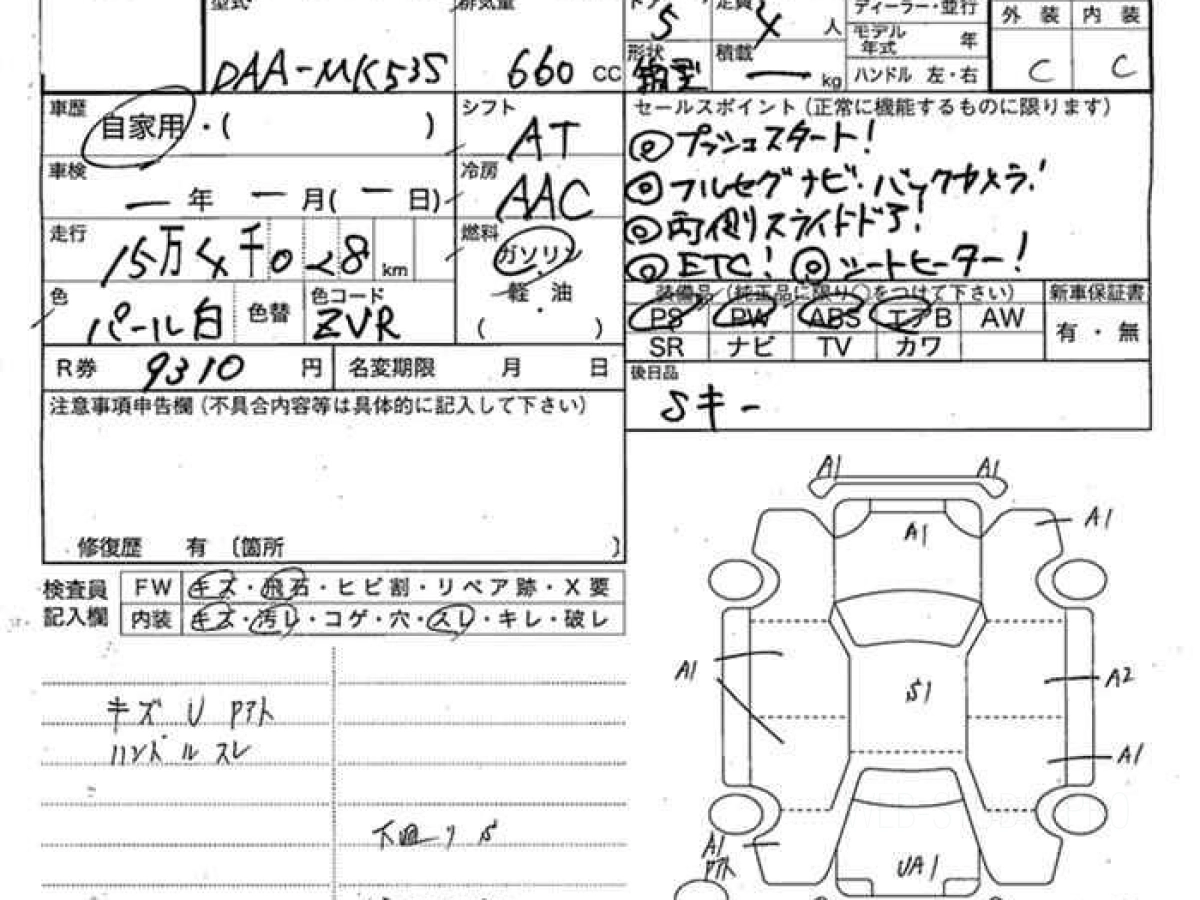 型式
DAA-MK53S
排気量
660 CC
ドア
5
定員
4 人
形状
箱型
積載
ー kg
ディーラー・並行
モデル年式 年
ハンドル 左・右
外装 内装
C C
車歴
自家用・( )
車検
ー年 ー月(ー日)
走行
15万4千028 km
色
パール白
色替
色コード
ZVR
シフト
AT
冷房
AAC
燃料
ガソリン・軽油
( )
セールスポイント(正常に機能するものに限ります)
◎プッシュスタート!
◎フルセグナビ・バックカメラ!
◎両側スライドドア!
◎ETC! ◎シートヒーター!
装備品(純正品に限り○をつけて下さい)
新車保証書
PS PW ABS エアB AW
有・無
SR ナビ TV カワ
R券 9310 円
名変期限 月 日
後日品
Sキー
注意事項申告欄(不具合内容等は具体的に記入して下さい)
修復歴 有 〔箇所 〕
検査員記入欄
FW キズ・飛石・ヒビ割・リペア跡・X要
内装 キズ・汚レ・コゲ・穴・スレ・キレ・破レ
キズ U Pアト
ハンドルスレ
下廻りS
A1 A1
A1 A1
A1 S1 A2
A1
A1
Pアト
UA1